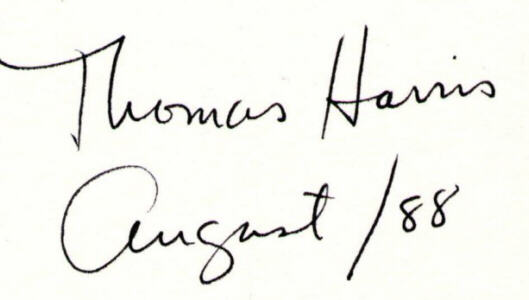 Thomas Harris
August /88